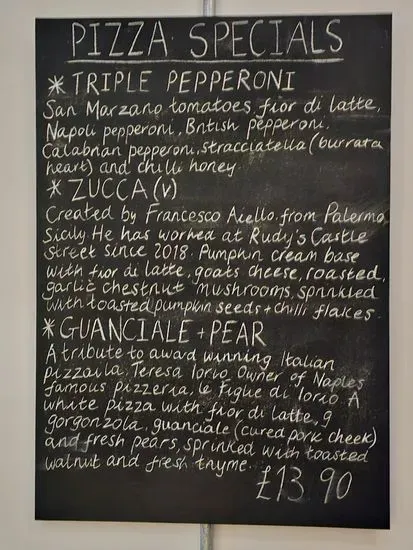 PIZZA SPECIALS
* TRIPLE PEPPERONI
San Marzano tomatoes, fior di latte,
Napoli pepperoni, British pepperoni,
Calabrian pepperoni, stracciatella (burrata
heart) and chilli honey.
* ZUCCA (v)
Created by Francesco Aiello, from Palermo,
Sicily He has worked at Rudy's Castle
Street since 2018. Pumpkin cream base
with fior di latte, goats cheese, roasted,
garlic chestnut mushrooms, sprinkled
with toasted pumpkin seeds + chilli flakes.
* GUANCIALE + PEAR
A tribute to award winning Italian
pizzaila, Teresa Iorio, Owner of Naples
famous pizzeria, le Figlie di Iorio. A
white pizza with fior di latte, g
gorgonzola, guanciale (cured pork cheek)
and fresh pears, sprinked with toasted
walnut and fresh thyme.
£13.90